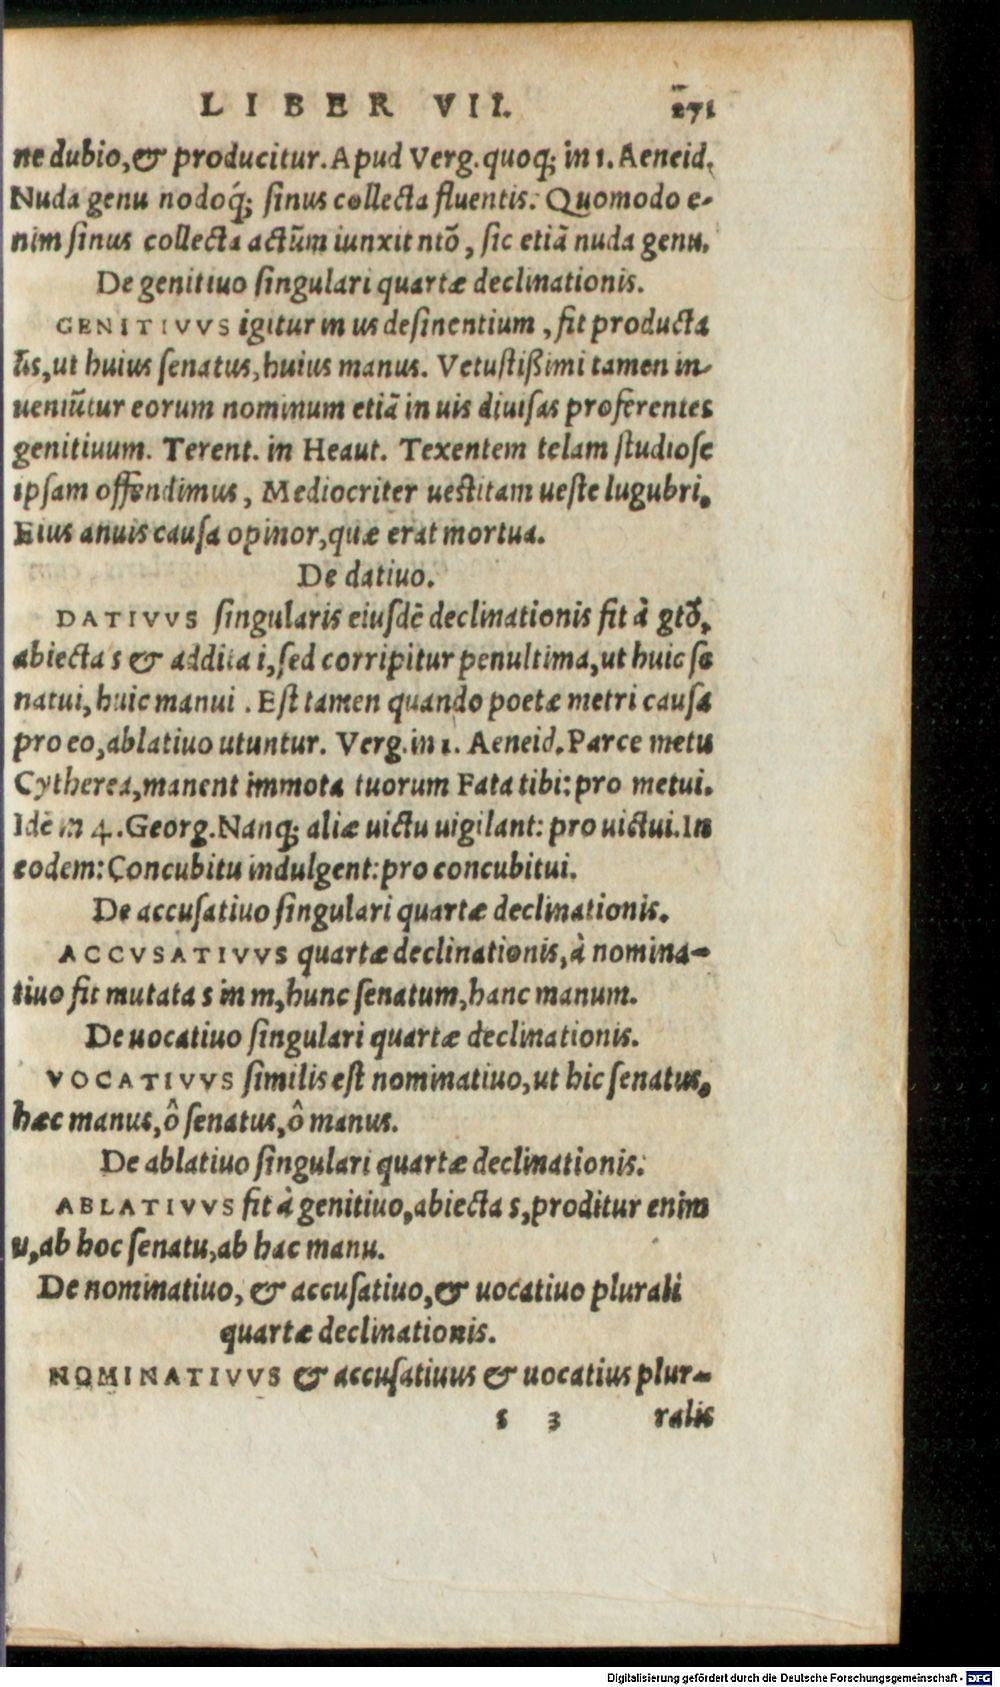 LIBER VII. 271
ne dubio, & producitur. Apud Verg. quoq; in 1. Aeneid.
Nuda genu nodoq́; sinus collecta fluentis. Quomodo e-
nim sinus collecta actũm iunxit ntõ, sic etiã nuda genu.
De genitiuo singulari quartæ declinationis.
GENITIVVS igitur in us desinentium, fit producta
ũs, ut huius senatus, huius manus. Vetustißimi tamen in-
ueniũtur eorum nominum etiã in uis diuisas proferentes
genitiuum. Terent. in Heaut. Texentem telam studiose
ipsam offendimus, Mediocriter uestitam ueste lugubri.
Eius anuis causa opinor, quæ erat mortua.
De datiuo.
DATIVVS singularis eiusdē declinationis fit à gtõ,
abiecta s & addita i, sed corripitur penultima, ut huic se
natui, huic manui. Est tamen quando poetæ metri causa
pro eo, ablatiuo utuntur. Verg. in 1. Aeneid. Parce metu
Cytherea, manent immota tuorum Fata tibi: pro metui.
Idē in 4. Georg. Nanq; aliæ uictu uigilant: pro uictui. In
eodem: Concubitu indulgent: pro concubitui.
De accusatiuo singulari quartæ declinationis.
ACCVSATIVVS quartæ declinationis, à nomina-
tiuo fit mutata s in m, hunc senatum, hanc manum.
De uocatiuo singulari quartæ declinationis.
VOCATIVVS similis est nominatiuo, ut hic senatus,
hæc manus, ô senatus, ô manus.
De ablatiuo singulari quartæ declinationis.
ABLATIVVS fit à genitiuo, abiecta s, proditur enim
u, ab hoc senatu, ab hac manu.
De nominatiuo, & accusatiuo, & uocatiuo plurali
quartæ declinationis.
NOMINATIVVS & accusatiuus & uocatius plur-
s 3 ralis
Digitalisierung gefördert durch die Deutsche Forschungsgemeinschaft - DFG